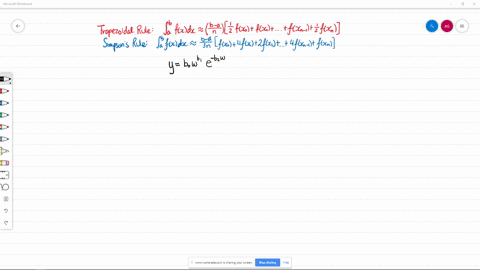 Microsoft Whiteboard
Trapezoidal Rule: ∫ₐᵇ f(x)dx ≈ (b-a/n)[1/2 f(x₀) + f(x₁) + ... + f(xₙ₋₁) + 1/2 f(xₙ)]
Simpson's Rule: ∫ₐᵇ f(x)dx ≈ b-a/3n [f(x₀) + 4f(x₁) + 2f(x₂) + ... + 4f(xₙ₋₁) + f(xₙ)]
y = b₀w^b₁ e^-b₂w
is sharing your screen.
Stop sharing
Hide